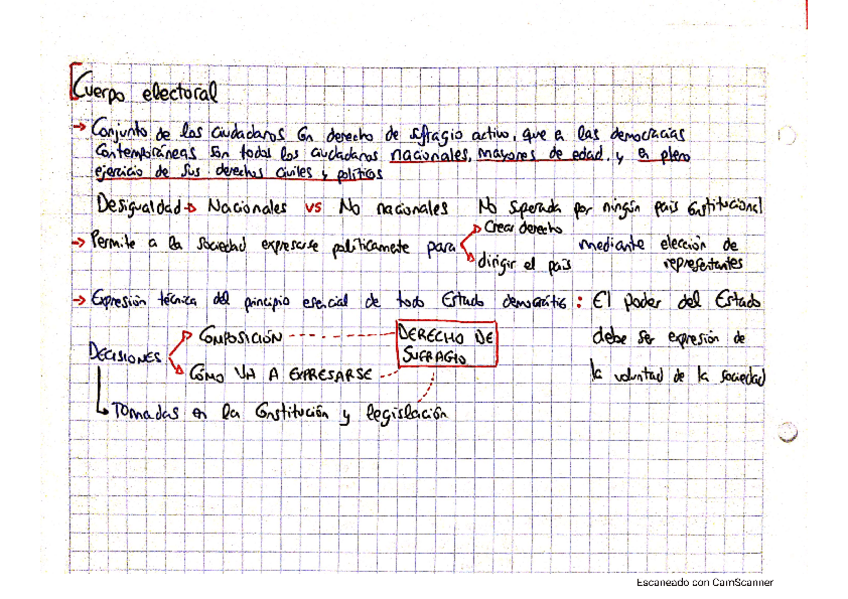 Cuerpo electoral
→ Conjunto de los ciudadanos con derecho de sufragio activo, que en las democracias
contemporáneas son todos los ciudadanos nacionales, mayores de edad, y en pleno
ejercicio de sus derechos civiles y políticos
Desigualdad → Nacionales vs No nacionales No superada por ningún país constitucional
→ Permite a la sociedad expresarse políticamente para
Crear derecho
dirigir el país
mediante elección de
representantes
→ Expresión técnica del principio esencial de todo Estado democrático: El poder del Estado
debe ser expresión de
la voluntad de la sociedad
DECISIONES
COMPOSICIÓN
CÓMO VA A EXPRESARSE
DERECHO DE
SUFRAGIO
Tomadas en la Constitución y legislación
Escaneado con CamScanner